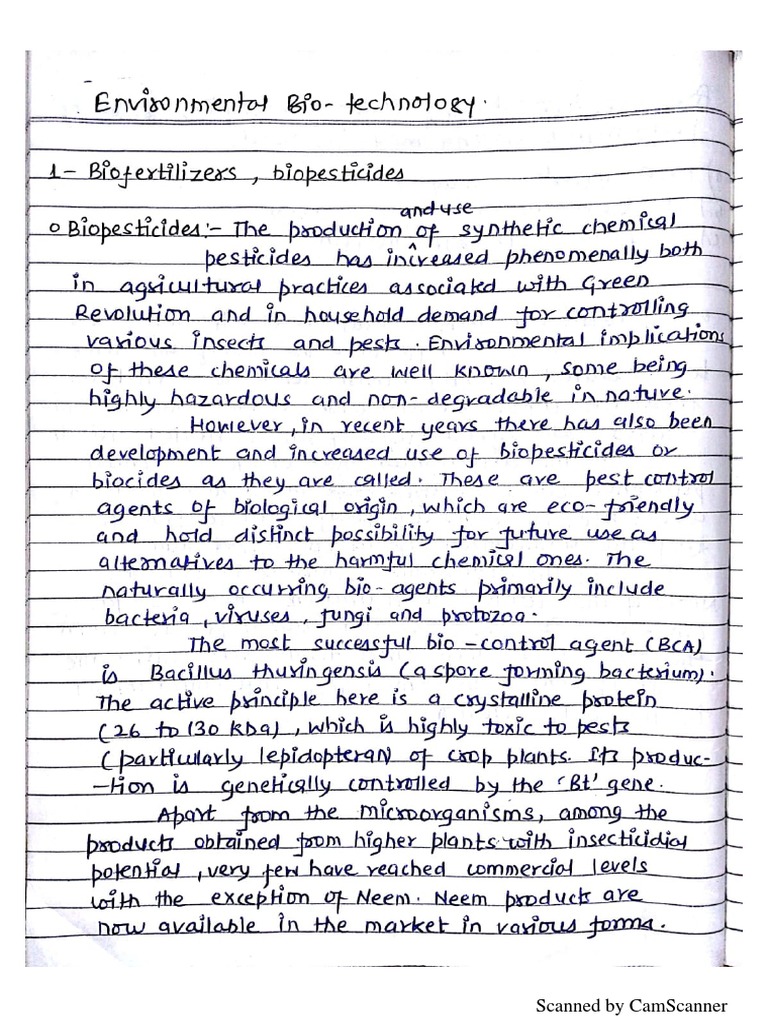 Environmental Bio-technology.
1- Biofertilizers, biopesticides
and use
o Biopesticides:- The production of synthetic chemical
pesticides has increased phenomenally both
in agricultural practices associated with Green
Revolution and in household demand for controlling
various insects and pests. Environmental implications
of these chemicals are well known, some being
highly hazardous and non-degradable in nature.
However, in recent years there has also been
development and increased use of biopesticides or
biocides as they are called. These are pest control
agents of biological origin, which are eco-friendly
and hold distinct possibility for future use as
alternatives to the harmful chemical ones. The
naturally occurring bio-agents primarily include
bacteria, viruses, fungi and protozoa.
The most successful bio-control agent (BCA)
is Bacillus thuringensis (a spore forming bacterium).
The active principle here is a crystalline protein
(26 to 130 kDa), which is highly toxic to pests
(particularly lepidopteran) of crop plants. Its produc-
-tion is genetically controlled by the 'Bt' gene.
Apart from the microorganisms, among the
products obtained from higher plants with insecticidial
potential, very few have reached commercial levels
with the exception of Neem. Neem products are
now available in the market in various forms.
Scanned by CamScanner